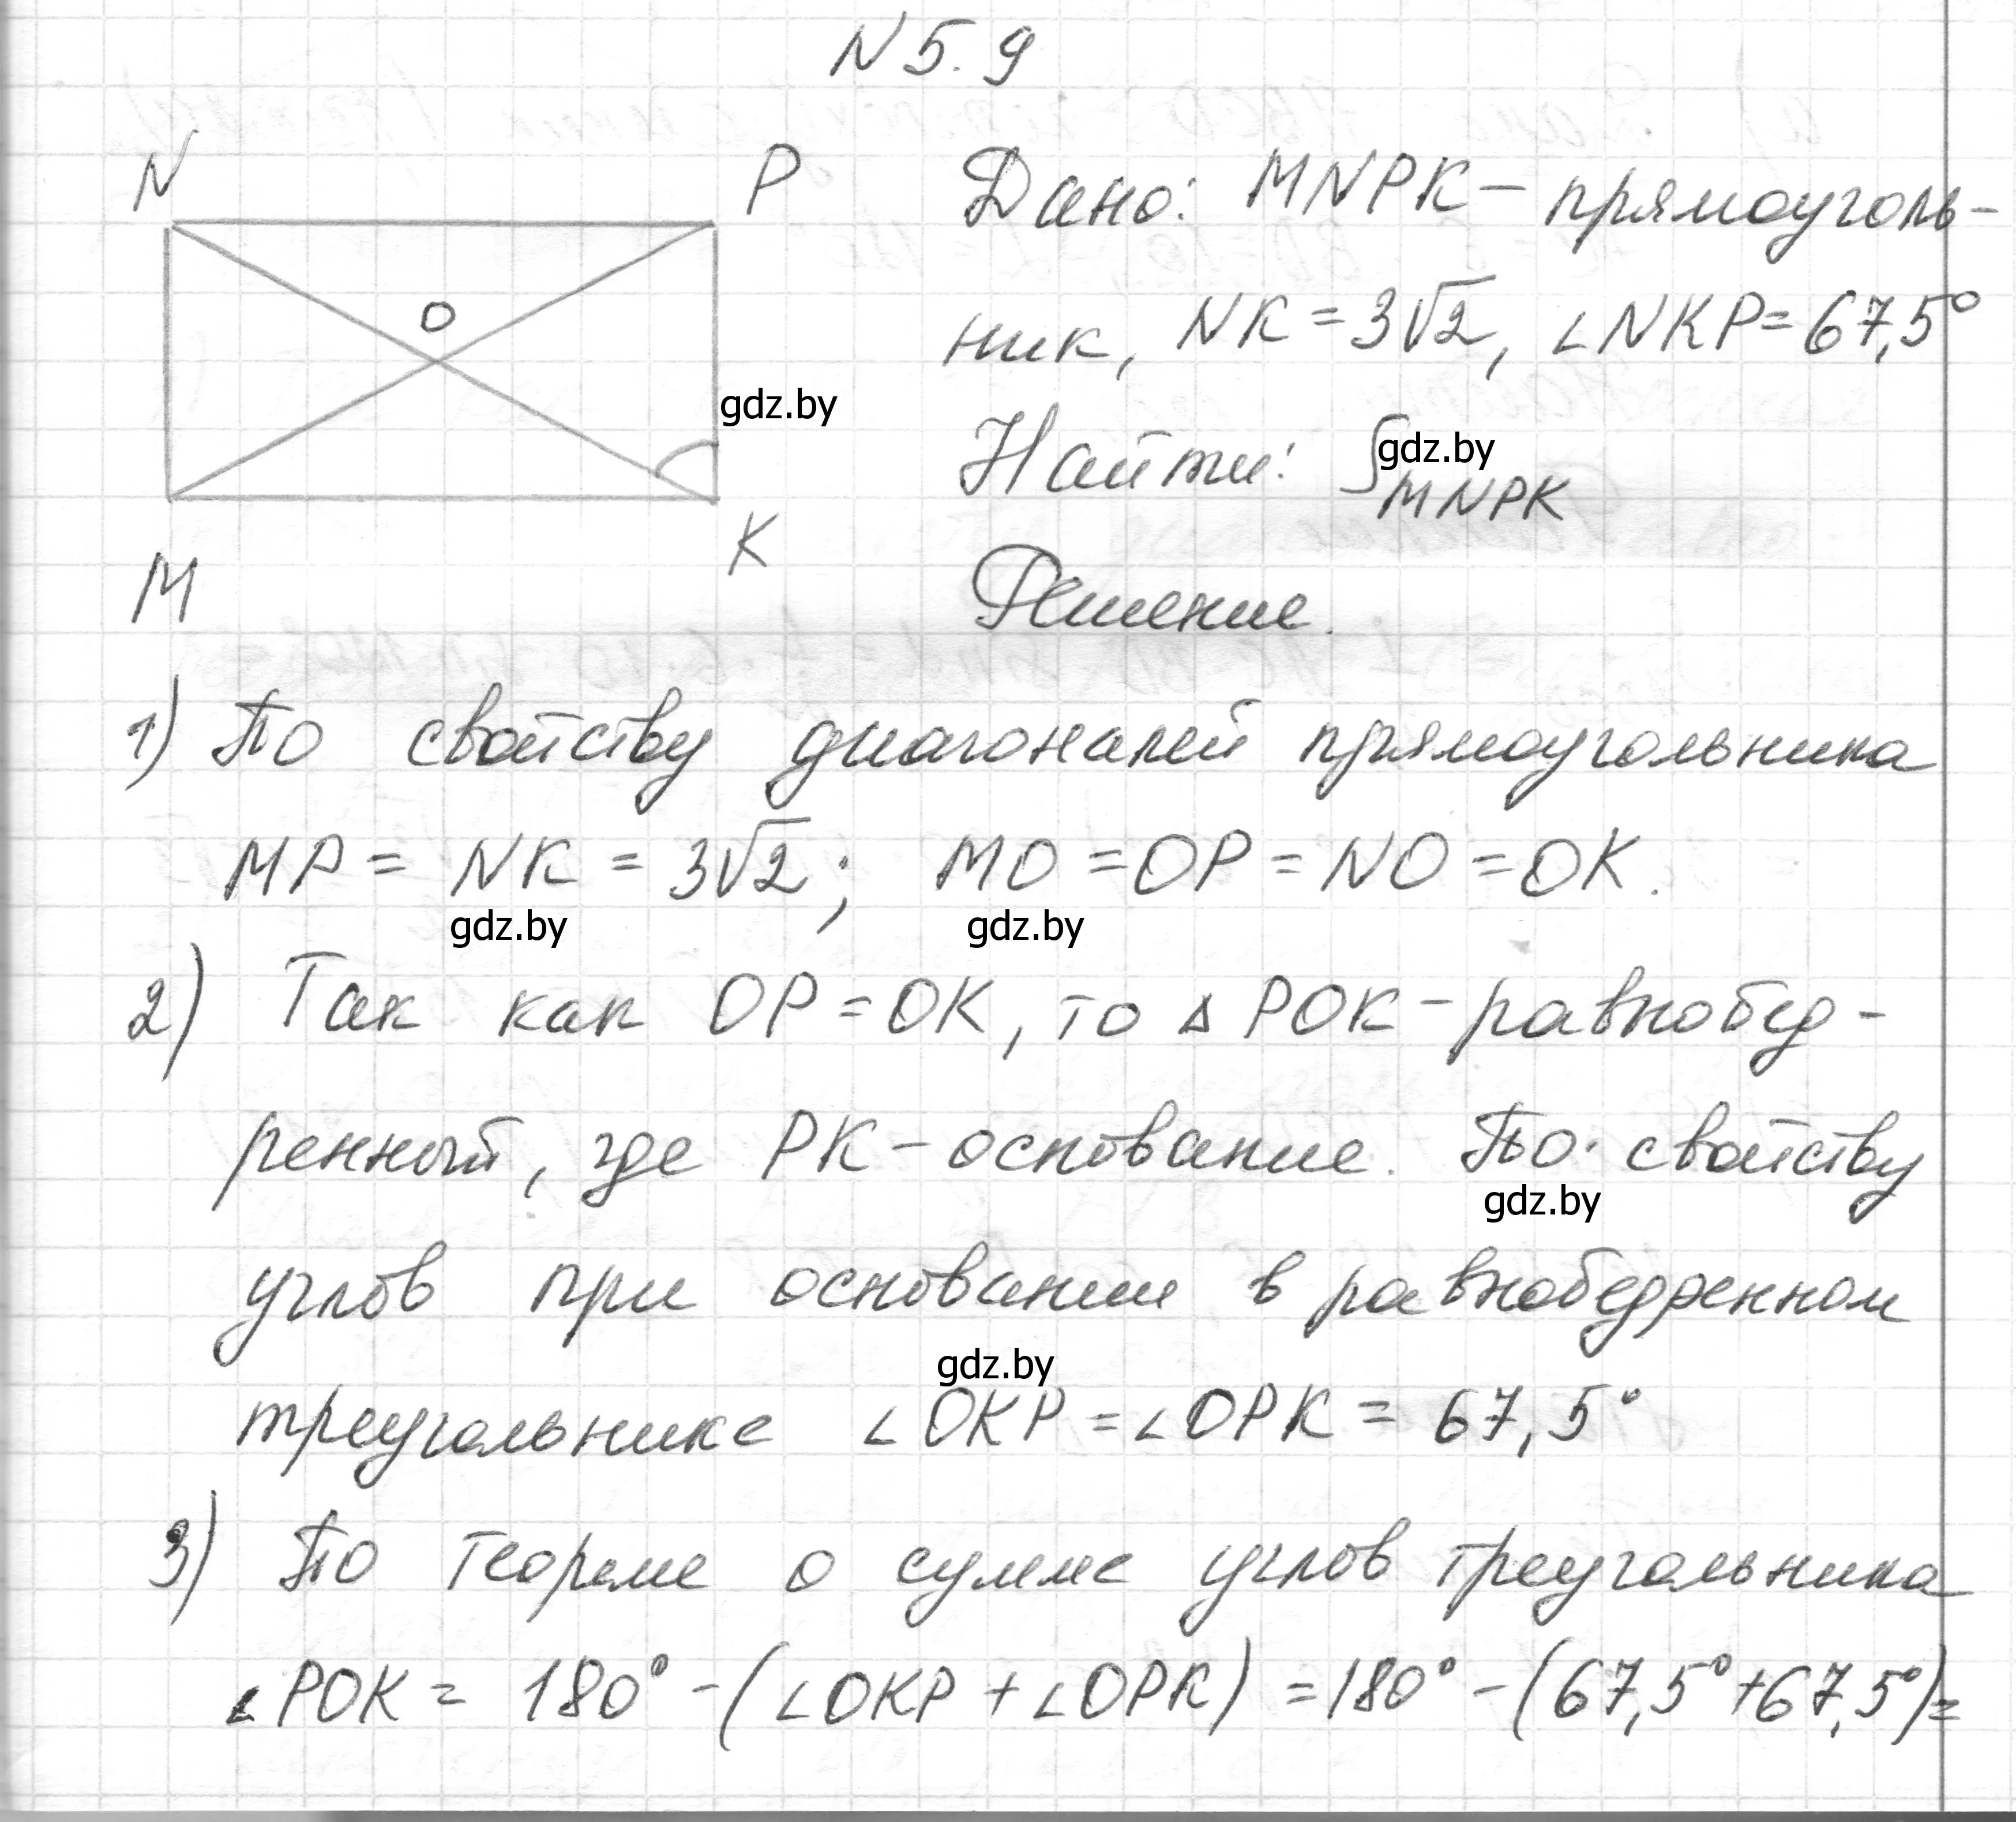 N 5.9
N
P
O
K
M
gdz.by
Дано: MNPK – прямоуголь-
ник, NK = 3√2, ∠NKP = 67,5°
Найти: S MNPK
gdz.by
Решение.
1) По свойству диагоналей прямоугольника
MP = NK = 3√2; MO = OP = NO = OK.
gdz.by gdz.by
2) Так как OP = OK, то △ POK – равнобед-
ренный, где PK – основание. По свойству
gdz.by
углов при основании в равнобедренном
gdz.by
треугольнике ∠OKP = ∠OPK = 67,5°
3) По теореме о сумме углов треугольника
∠POK = 180° – (∠OKP + ∠OPK) = 180° – (67,5° + 67,5°) =